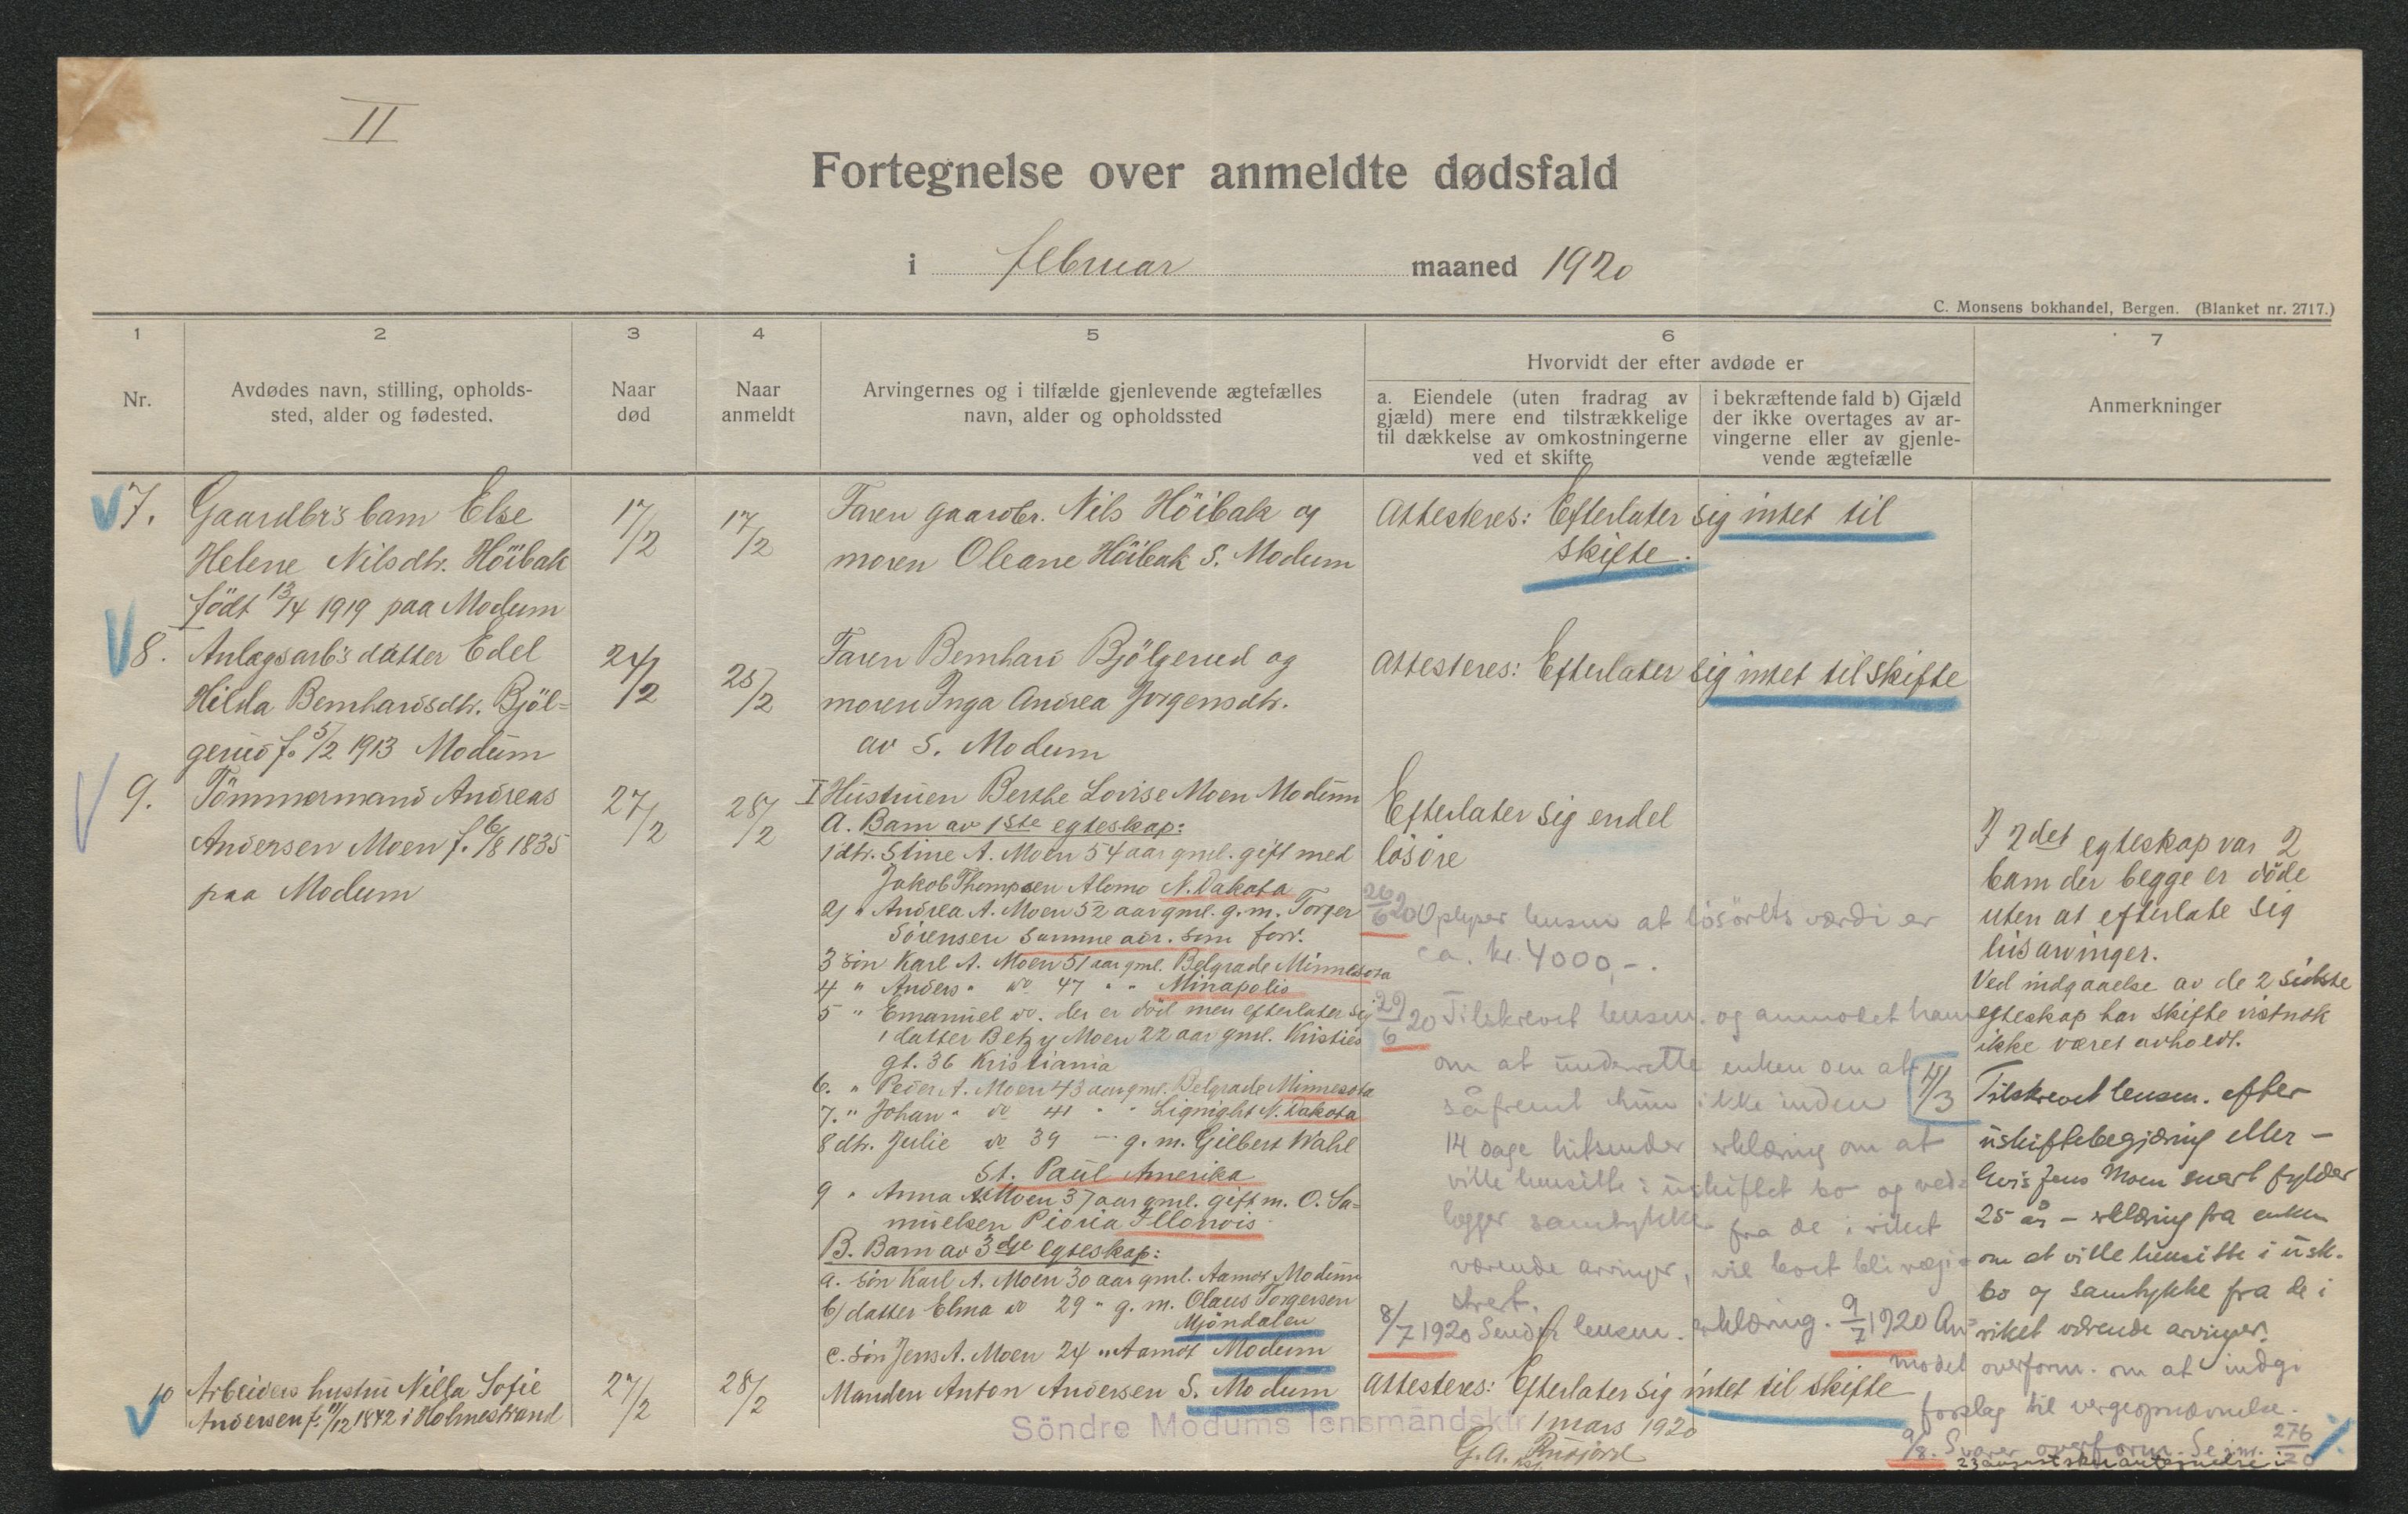 II
Fortegnelse over anmeldte dødsfald
i februar maaned 1920
C. Monsens bokhandel, Bergen. (Blanket nr. 2717.)
1
2
3
4
5
6
7
Nr.
Avdødes navn, stilling, opholds-
sted, alder og fødested.
Naar
død
Naar
anmeldt
Arvingernes og i tilfælde gjenlevende ægtefælles
navn, alder og opholdssted
Hvorvidt der efter avdøde er
a. Eiendele (uten fradrag av
gjæld) mere end tilstrækkelige
til dækkelse av omkostningerne
ved et skifte
i bekræftende fald b) Gjæld
der ikke overtages av ar-
vingerne eller av gjenle-
vende ægtefælle
Anmerkninger
7.
Gaardbr's barn Else
Helene Nilsdtr. Höibak
födt 13/4 1919 paa Modum
17/2
17/2
Faren gaardbr. Nils Höibak og
moren Oleane Höibak S. Modum
Attesteres: Efterlater sig intet til
skifte.
8.
Anlægsarb's datter Edel
Hilda Bernhardsdtr. Bjöl=
gerud f. 5/2 1913 Modum
24/2
25/2
Faren Bernhard Bjölgerud og
moren Inga Andrea Jorgensdtr.
av S. Modum
Attesteres: Efterlater sig intet til skifte
9.
Tömmermand Andreas
Andersen Moen f. 6/8 1835
paa Modum
27/2
28/2
I Hustruen Berthe Lovise Moen Modum
A. Barn av 1ste egteskap:
1 dtr. Stine A. Moen 54 aar gml. gift med
Jakob Thompsen Alomo N. Dakota
2) " Andrea A. Moen 52 aar gml. g. m. Torger
Sörensen samme adr. som forr.
3 sön Karl A. Moen 51 aar gml. Belgrade Minnesota
4 " Anders " do 47 " " Minapolis
5 " Emanuel do. der er död men efterlater sig
1 datter Betzy Moen 22 aar gml. Kristies
gt. 36 Kristiania
6. " Peder A. Moen 43 aar gml. Belgrade Minnesota
7. " Johan " do 41 " " Lignight N. Dakota
8 dtr. Julie do 39 " g. m. Gilbert Wahl
St. Paul Amerika
9 " Anna A. Moen 37 aar gml. gift m. O. Sa=
muelsen Pioria Illonois
B. Barn av 3dje egteskap:
a. sön Karl A. Moen 30 aar gml. Aamot Modum
b) datter Elma do 29 " g. m. Olaus Torgersen
Mjöndalen
c. sön Jens A. Moen 24 " Aamot Modum
Efterlater sig endel
lösöre
26/6 20 Oplyser lensm at lösörets værdi er
ca. kr. 4000,-.
29/6 20 Tilskrevet lensm. og anmodet ham
om at underrette enken om at
såfremt hun ikke inden
14 dage hitsender erklæring om at
ville hensitte i uskiftet bo og ved=
legger samtykke fra de i riket
værende arvinger, vil boet bli regi=
strert.
8/7 1920 Sender lensm. erklæring. 9/7 1920 An=
modet overform. om at indgi
forslag til vergeopnævnelse.
9/8. Svarer overform. Se jnr. 276/20
I 2det egteskap var 2
barn der begge er döde
uten at efterlate sig
livsarvinger.
Ved indgaaelse av de 2 sidste
egteskap har skifte vistnok
ikke været avholdt.
11/3 Tilskrevet lensm. efter
uskiftebegjæring eller –
hvis Jens Moen snart fylder
25 år – erklæring fra enken
om at ville hensitte i usk.
bo og samtykke fra de i
riket værende arvinger.
10
Arbeiders hustru Nilla Sofie
Andersen f. 11/12 1842 i Holmestrand
27/2
28/2
Manden Anton Andersen S. Modum
Attesteres: Efterlater sig intet til skifte
Söndre Modums lensmandsktr 1 mars 1920
G. A.